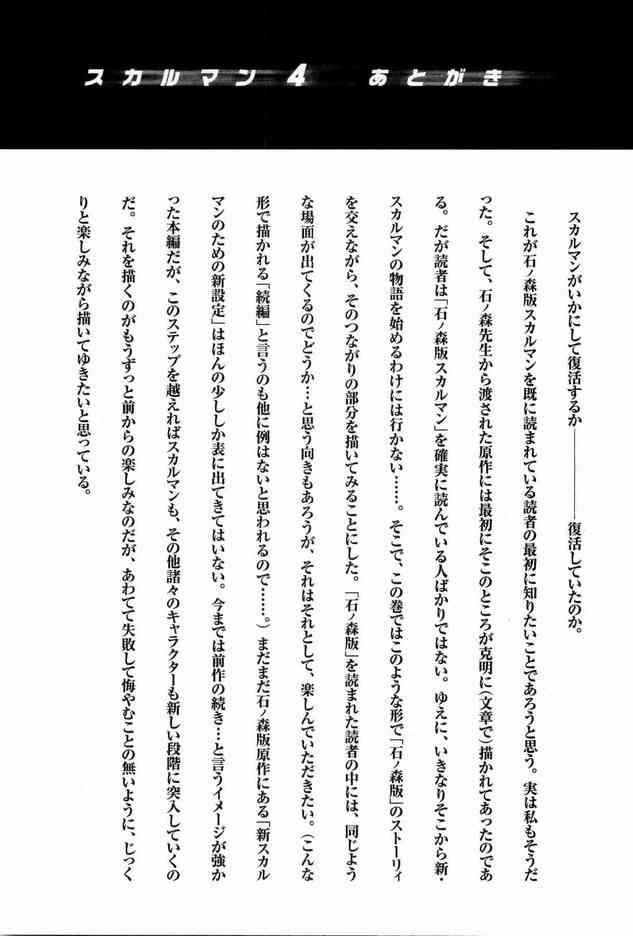 スカルマン4 あとがき
スカルマンがいかにして復活するか————復活していたのか。
これが石ノ森版スカルマンを既に読まれている読者の最初に知りたいことであろうと思う。実は私もそうだ
った。そして、石ノ森先生から渡された原作には最初にそこのところが克明に(文章で)描かれてあったのであ
る。だが読者は「石ノ森版スカルマン」を確実に読んでいる人ばかりではない。ゆえに、いきなりそこから新・
スカルマンの物語を始めるわけには行かない……。そこで、この巻ではこのような形で「石ノ森版」のストーリィ
を交えながら、そのつながりの部分を描いてみることにした。「石ノ森版」を読まれた読者の中には、同じよう
な場面が出てくるのでどうか…と思う向きもあろうが、それはそれとして、楽しんでいただきたい。(こんな
形で描かれる「続編」と言うのも他に例はないと思われるので……。)まだまだ石ノ森版原作にある「新スカル
マンのための新設定」はほんの少ししか表に出てきてはいない。今までは前作の続き…と言うイメージが強か
った本編だが、このステップを越えればスカルマンも、その他諸々のキャラクターも新しい段階に突入していくの
だ。それを描くのがもうずっと前からの楽しみなのだが、あわてて失敗して悔やむことの無いように、じっく
りと楽しみながら描いてゆきたいと思っている。